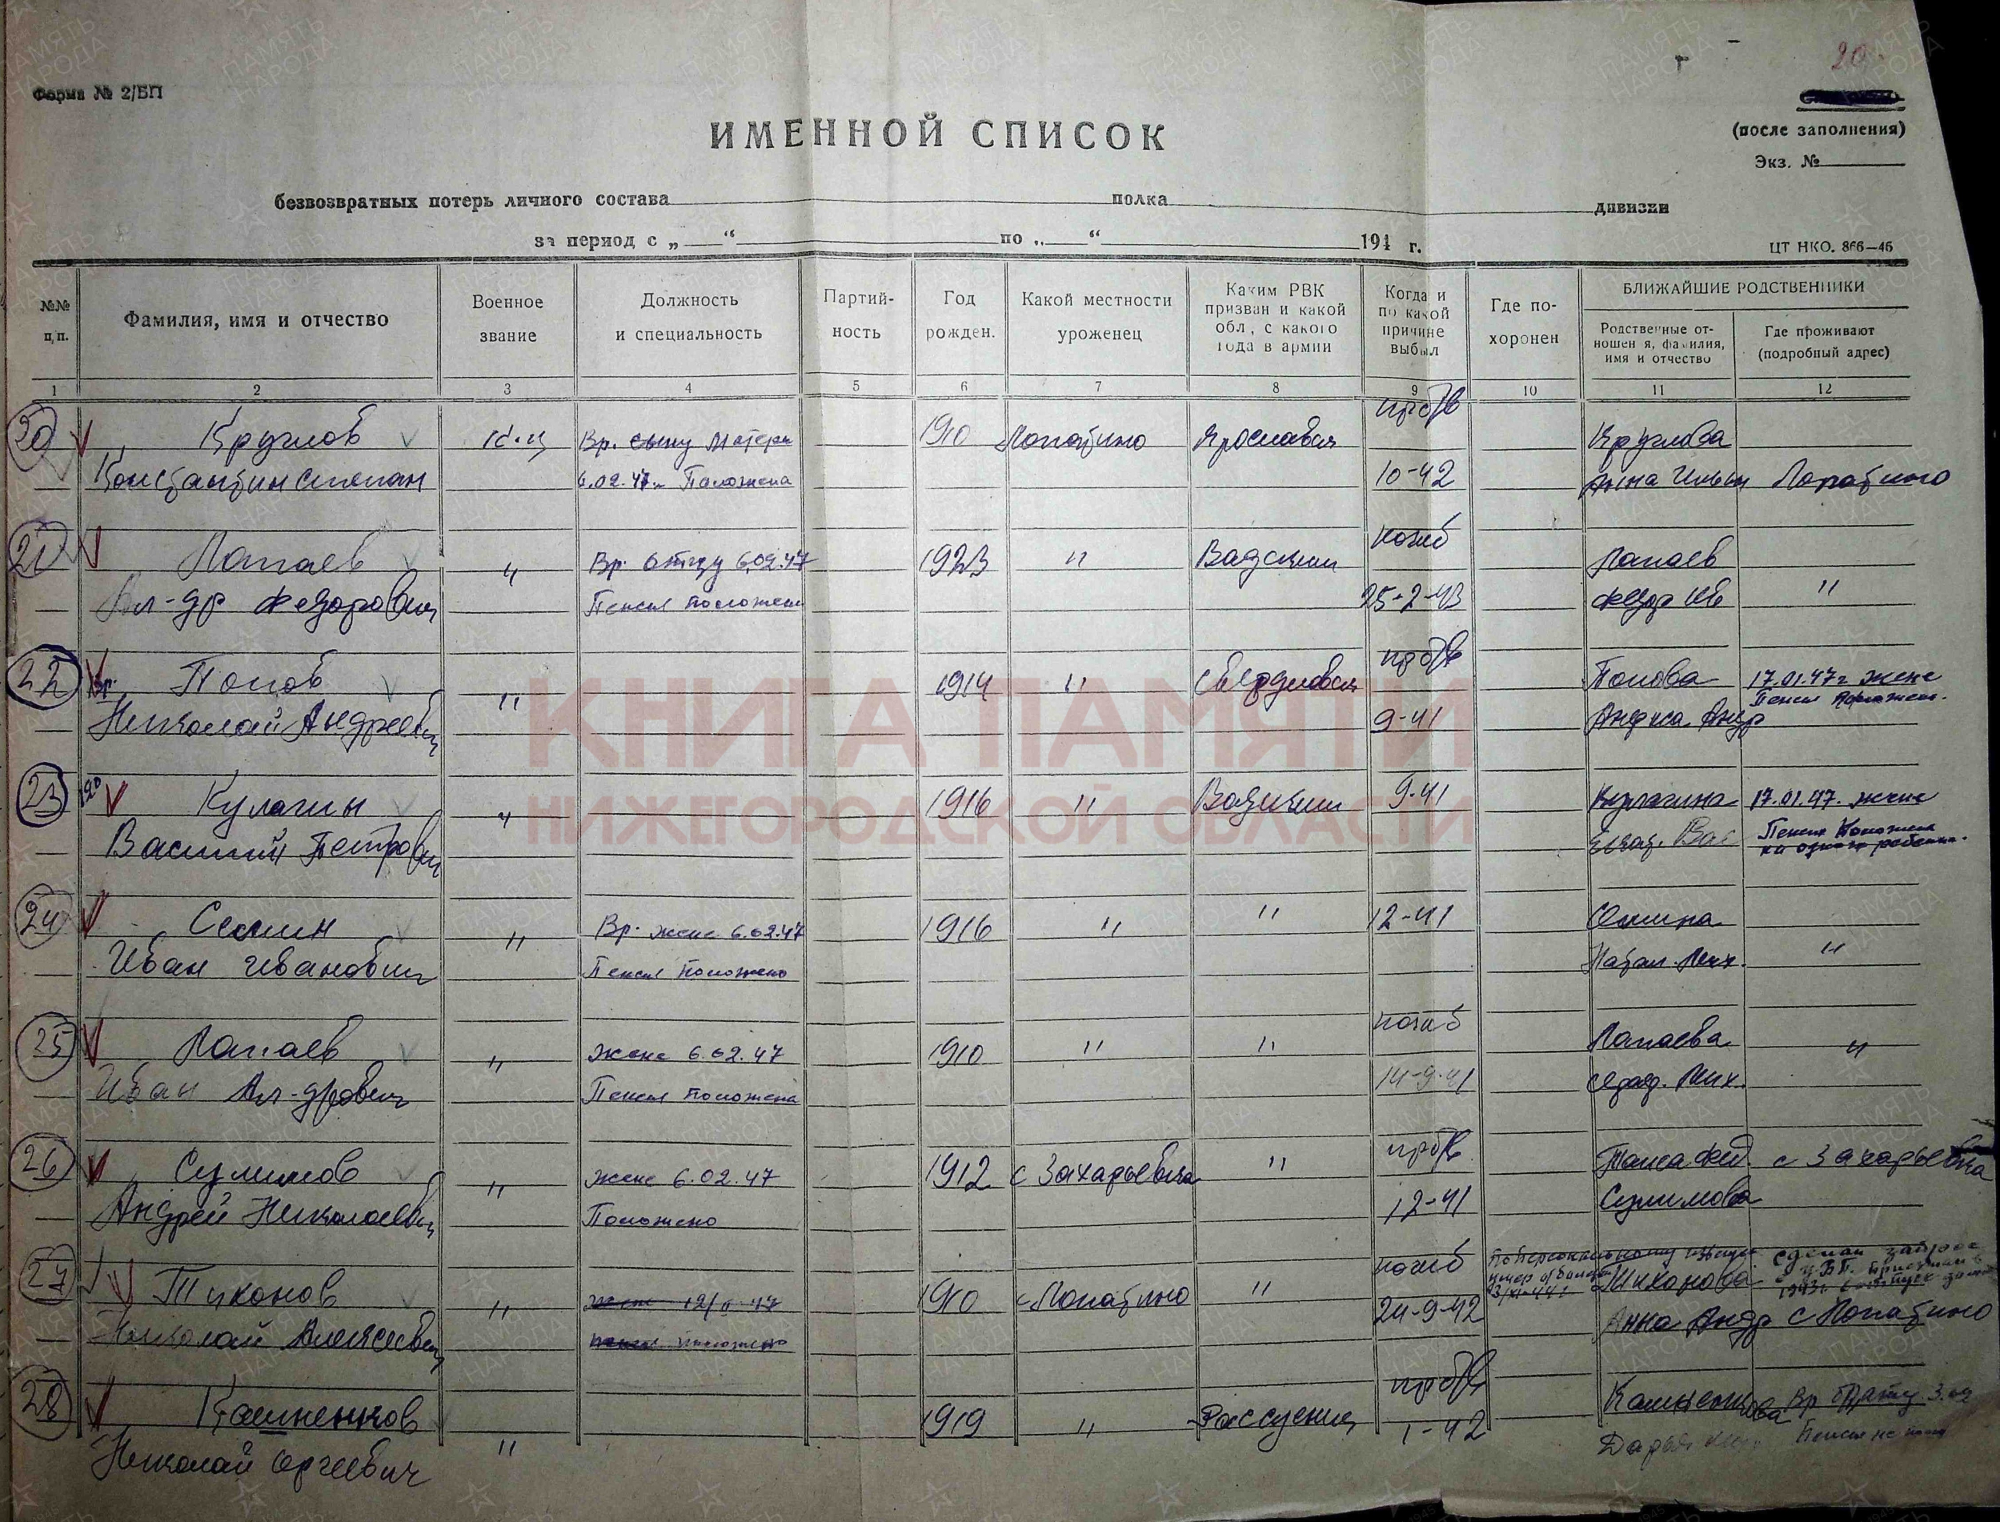 20
Форма № 2/БП
(после заполнения)
Экз. №
ИМЕННОЙ СПИСОК
безвозвратных потерь личного состава полка дивизии
за период с „ “ по „ “ 194 г.
ЦТ НКО. 866—46
№№ п,п.
Фамилия, имя и отчество
Военное звание
Должность и специальность
Партий-
ность
Год рожден.
Какой местности уроженец
Каким РВК
призван и какой
обл, с какого
года в армии
Когда и
по какой
причине
выбыл
Где по-
хоронен
БЛИЖАЙШИЕ РОДСТВЕННИКИ
Родственные от-
ношен я, фамилия,
имя и отчество
Где проживают
(подробный адрес)
1 2 3 4 5 6 7 8 9 10 11 12
20 Круглов к-ц Вр. сыну Матери 1910 Лопатино Ярославск проб/в Круглова
Константин Степан 6.02.47 Положена 10-42 Анна Ильин Лопатино
21 Лопаев " Вр. Отцу 6.02.47 1923 " Вадским погиб Лопаев
Ал-др Федорович Пенсия положена 25-2-43 Федор Ив "
22 Вр. Попов " 1914 " Свердловск проб/в Попова 17.01.47г жене
Николай Андреевич 9-41 Анфиса Андр Пенсия положен.
23 Кулагин " 1916 " Вадским 9-41 Кулагина 17.01.47. жене
Василий Петрович Вас Пенсия Положена
на одного ребенка.
24 Семин " Вр. жене 6.02.47 1916 " " 12-41 Семина
Иван Иванович Пенсия положено Натал. Мих. "
25 Лопаев " жене 6.02.47 1910 " " погиб Лопаева "
Иван Ал-дрович Пенсия положена 14-9-41 Мих.
26 Сулимов " жене 6.02.47 1912 с Захарьевка " проб/в Таиса Фед. с Захарьевка
Андрей Николаевич Положено 12-41 Сулимова
27 Тихонов " жене 12/II-47 1910 с Лопатино " погиб Тихонова сделан запрос
Николай Алексеевич пенсия положено 24-9-42 Анна Андр с Лопатино
28 Кашненков " 1919 " проб/в Вр брату
Николай Сергеевич 1-42 Дарья Пенсия не
КНИГА ПАМЯТИ
НИЖЕГОРОДСКОЙ ОБЛАСТИ
ПАМЯТЬ НАРОДА